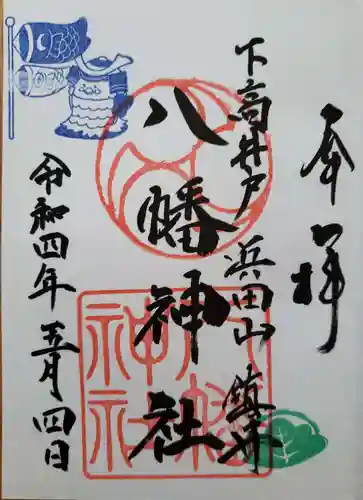 奉拝
下高井戸 浜田山 鎮守
八幡神社
令和四年 五月 四日
八幡
神社